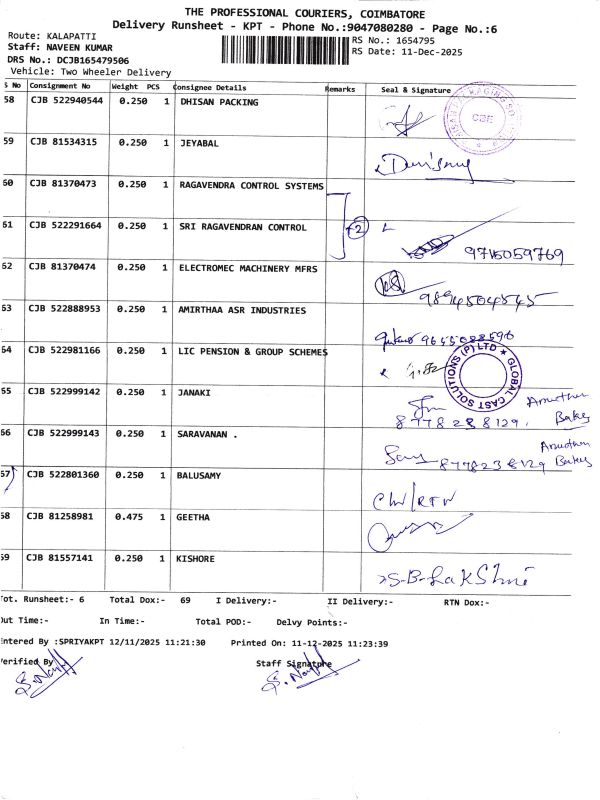 THE PROFESSIONAL COURIERS, COIMBATORE
Delivery Runsheet - KPT - Phone No.:9047080280 - Page No.:6
Route: KALAPATTI
RS No.: 1654795
Staff: NAVEEN KUMAR
RS Date: 11-Dec-2025
DRS No.: DCJB165479506
Vehicle: Two Wheeler Delivery
S No Consignment No Weight PCS Consignee Details Remarks Seal & Signature
58 CJB 522940544 0.250 1 DHISAN PACKING
CBE
59 CJB 81534315 0.250 1 JEYABAL
60 CJB 81370473 0.250 1 RAGAVENDRA CONTROL SYSTEMS
2
61 CJB 522291664 0.250 1 SRI RAGAVENDRAN CONTROL
9715059769
62 CJB 81370474 0.250 1 ELECTROMEC MACHINERY MFRS
9894504545
63 CJB 522888953 0.250 1 AMIRTHAA ASR INDUSTRIES
64 CJB 522981166 0.250 1 LIC PENSION & GROUP SCHEMES
GLOBAL CAST SOLUTIONS (P) LTD
65 CJB 522999142 0.250 1 JANAKI
8778238129.
66 CJB 522999143 0.250 1 SARAVANAN .
8778238129
67 CJB 522801360 0.250 1 BALUSAMY
68 CJB 81258981 0.475 1 GEETHA
69 CJB 81557141 0.250 1 KISHORE
S-B-LaKShmi
Tot. Runsheet:- 6 Total Dox:- 69 I Delivery:- II Delivery:- RTN Dox:-
Out Time:- In Time:- Total POD:- Delvy Points:-
Entered By :SPRIYAKPT 12/11/2025 11:21:30 Printed On: 11-12-2025 11:23:39
Verified By Staff Signature